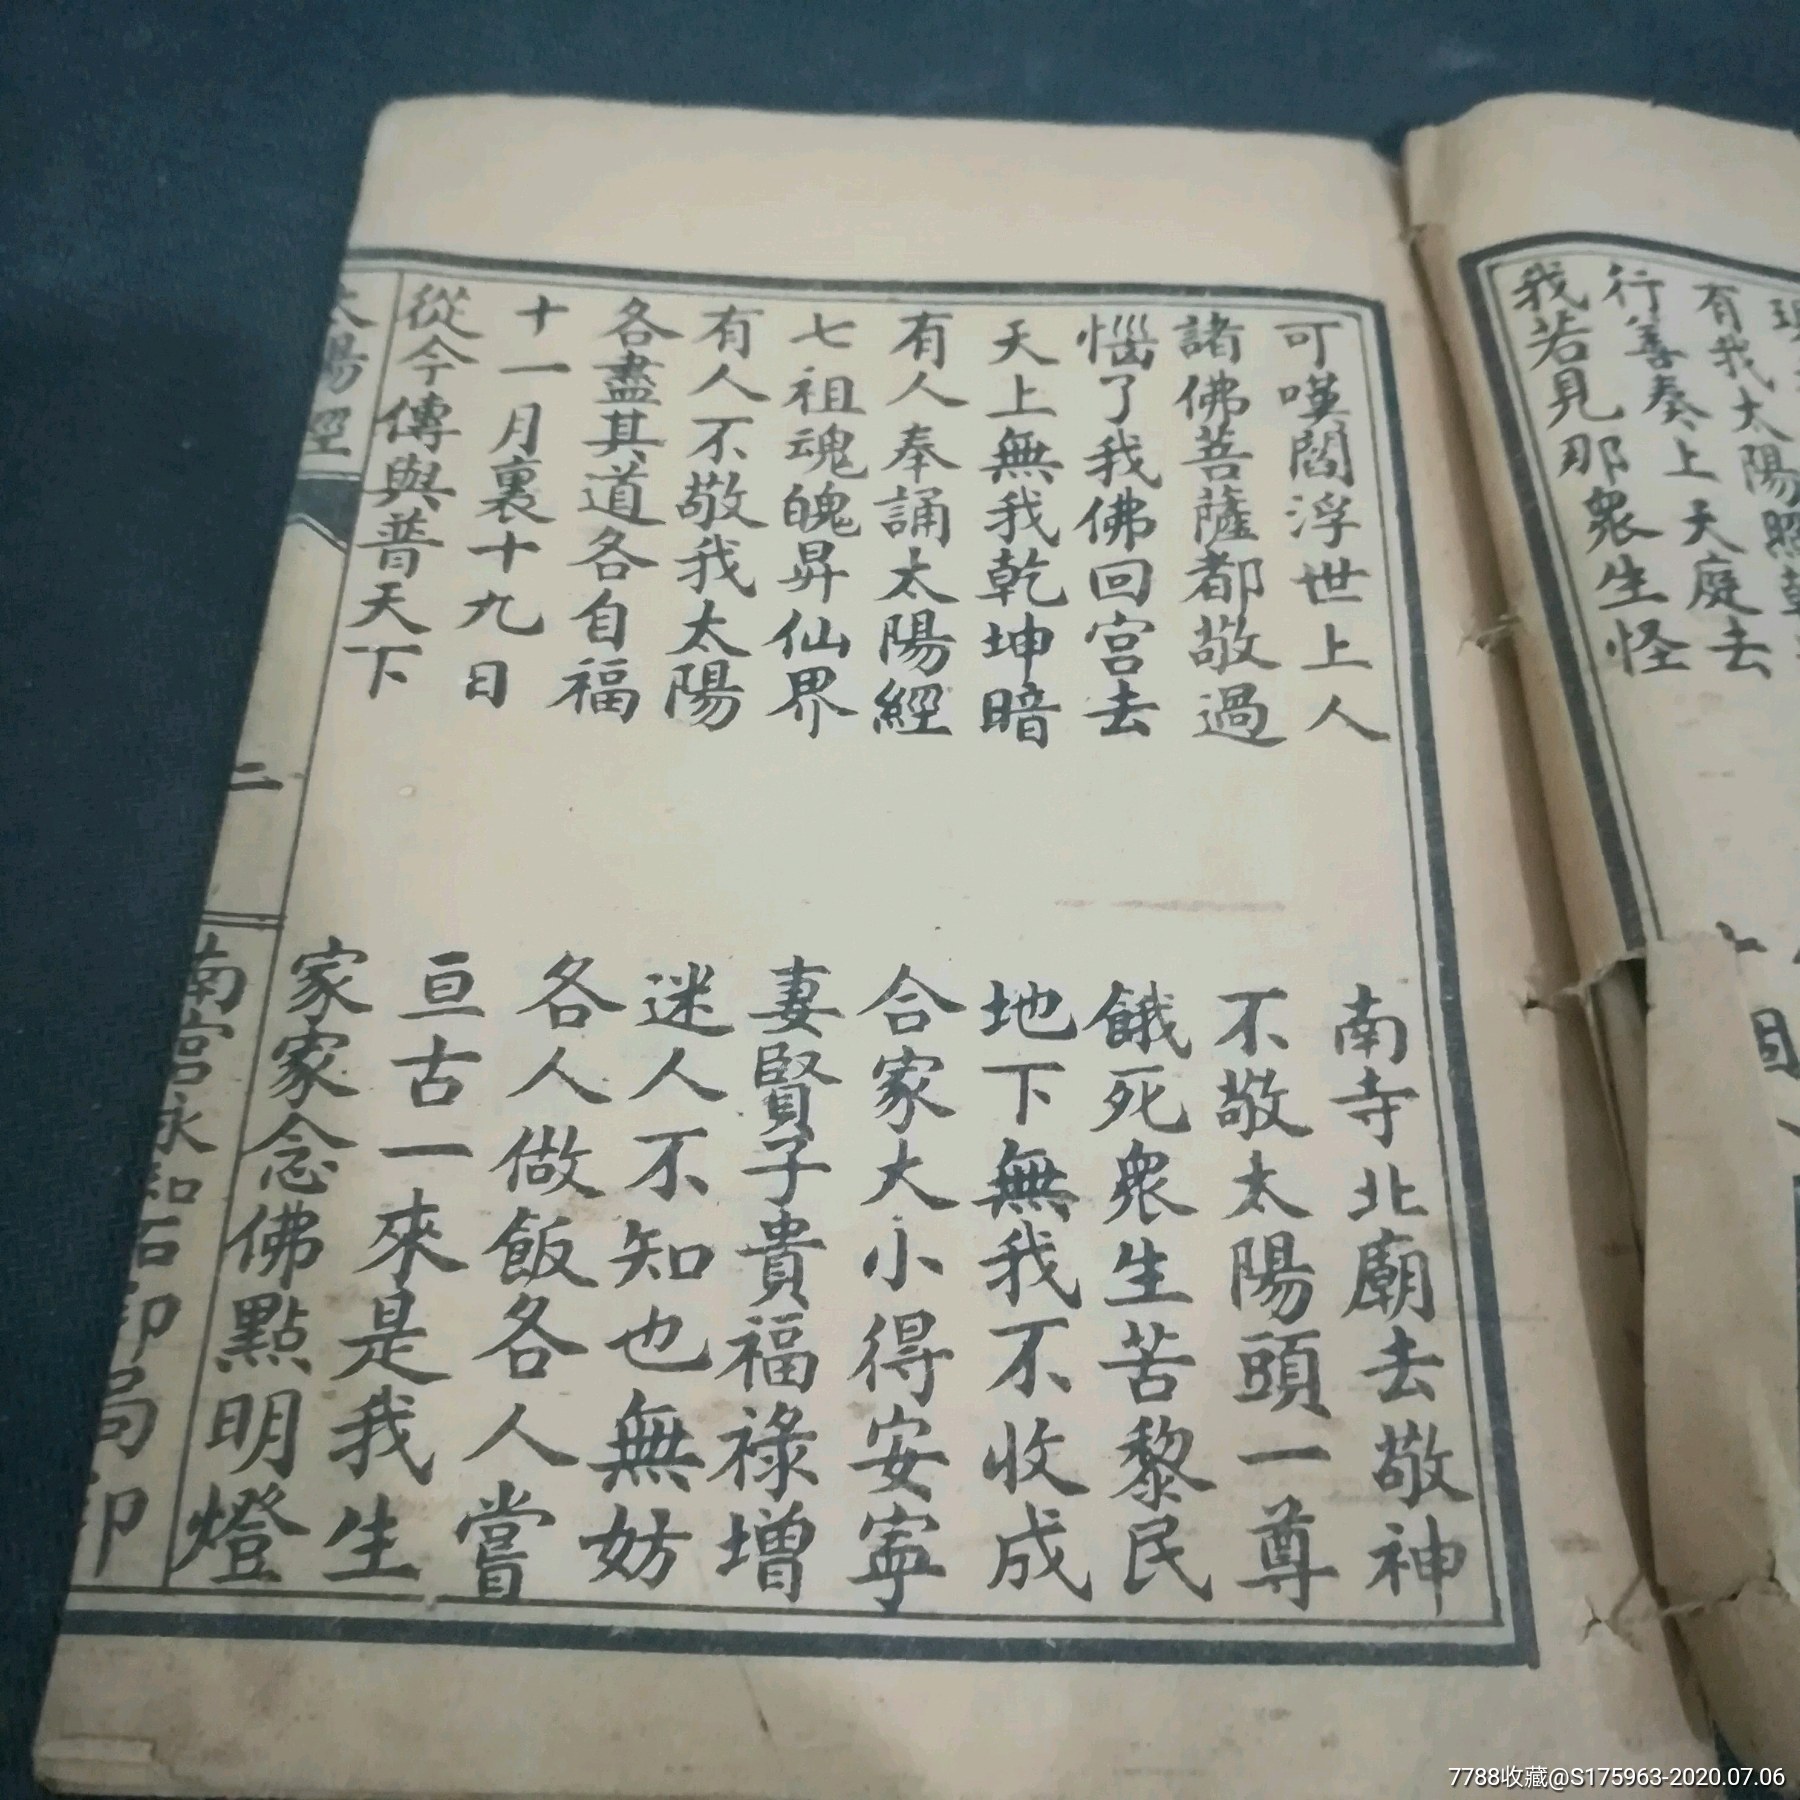 有我太陽照
行善奏上天庭去
我若見那衆生怪
可嘆閻浮世上人
南寺北廟去敬神
諸佛菩薩都敬過
不敬太陽頭一尊
惱了我佛回宮去
餓死衆生苦黎民
天上無我乾坤暗
地下無我不收成
有人奉誦太陽經
合家大小得安寧
七祖魂魄昇仙界
妻賢子貴福祿增
有人不敬我太陽
迷人不知也無妨
各盡其道各自福
各人做飯各人嘗
十一月裏十九日
亘古一來是我生
從今傳與普天下
家家念佛點明燈
太陽經
二
南宮永和石印局印
7788收藏@S175963-2020.07.06